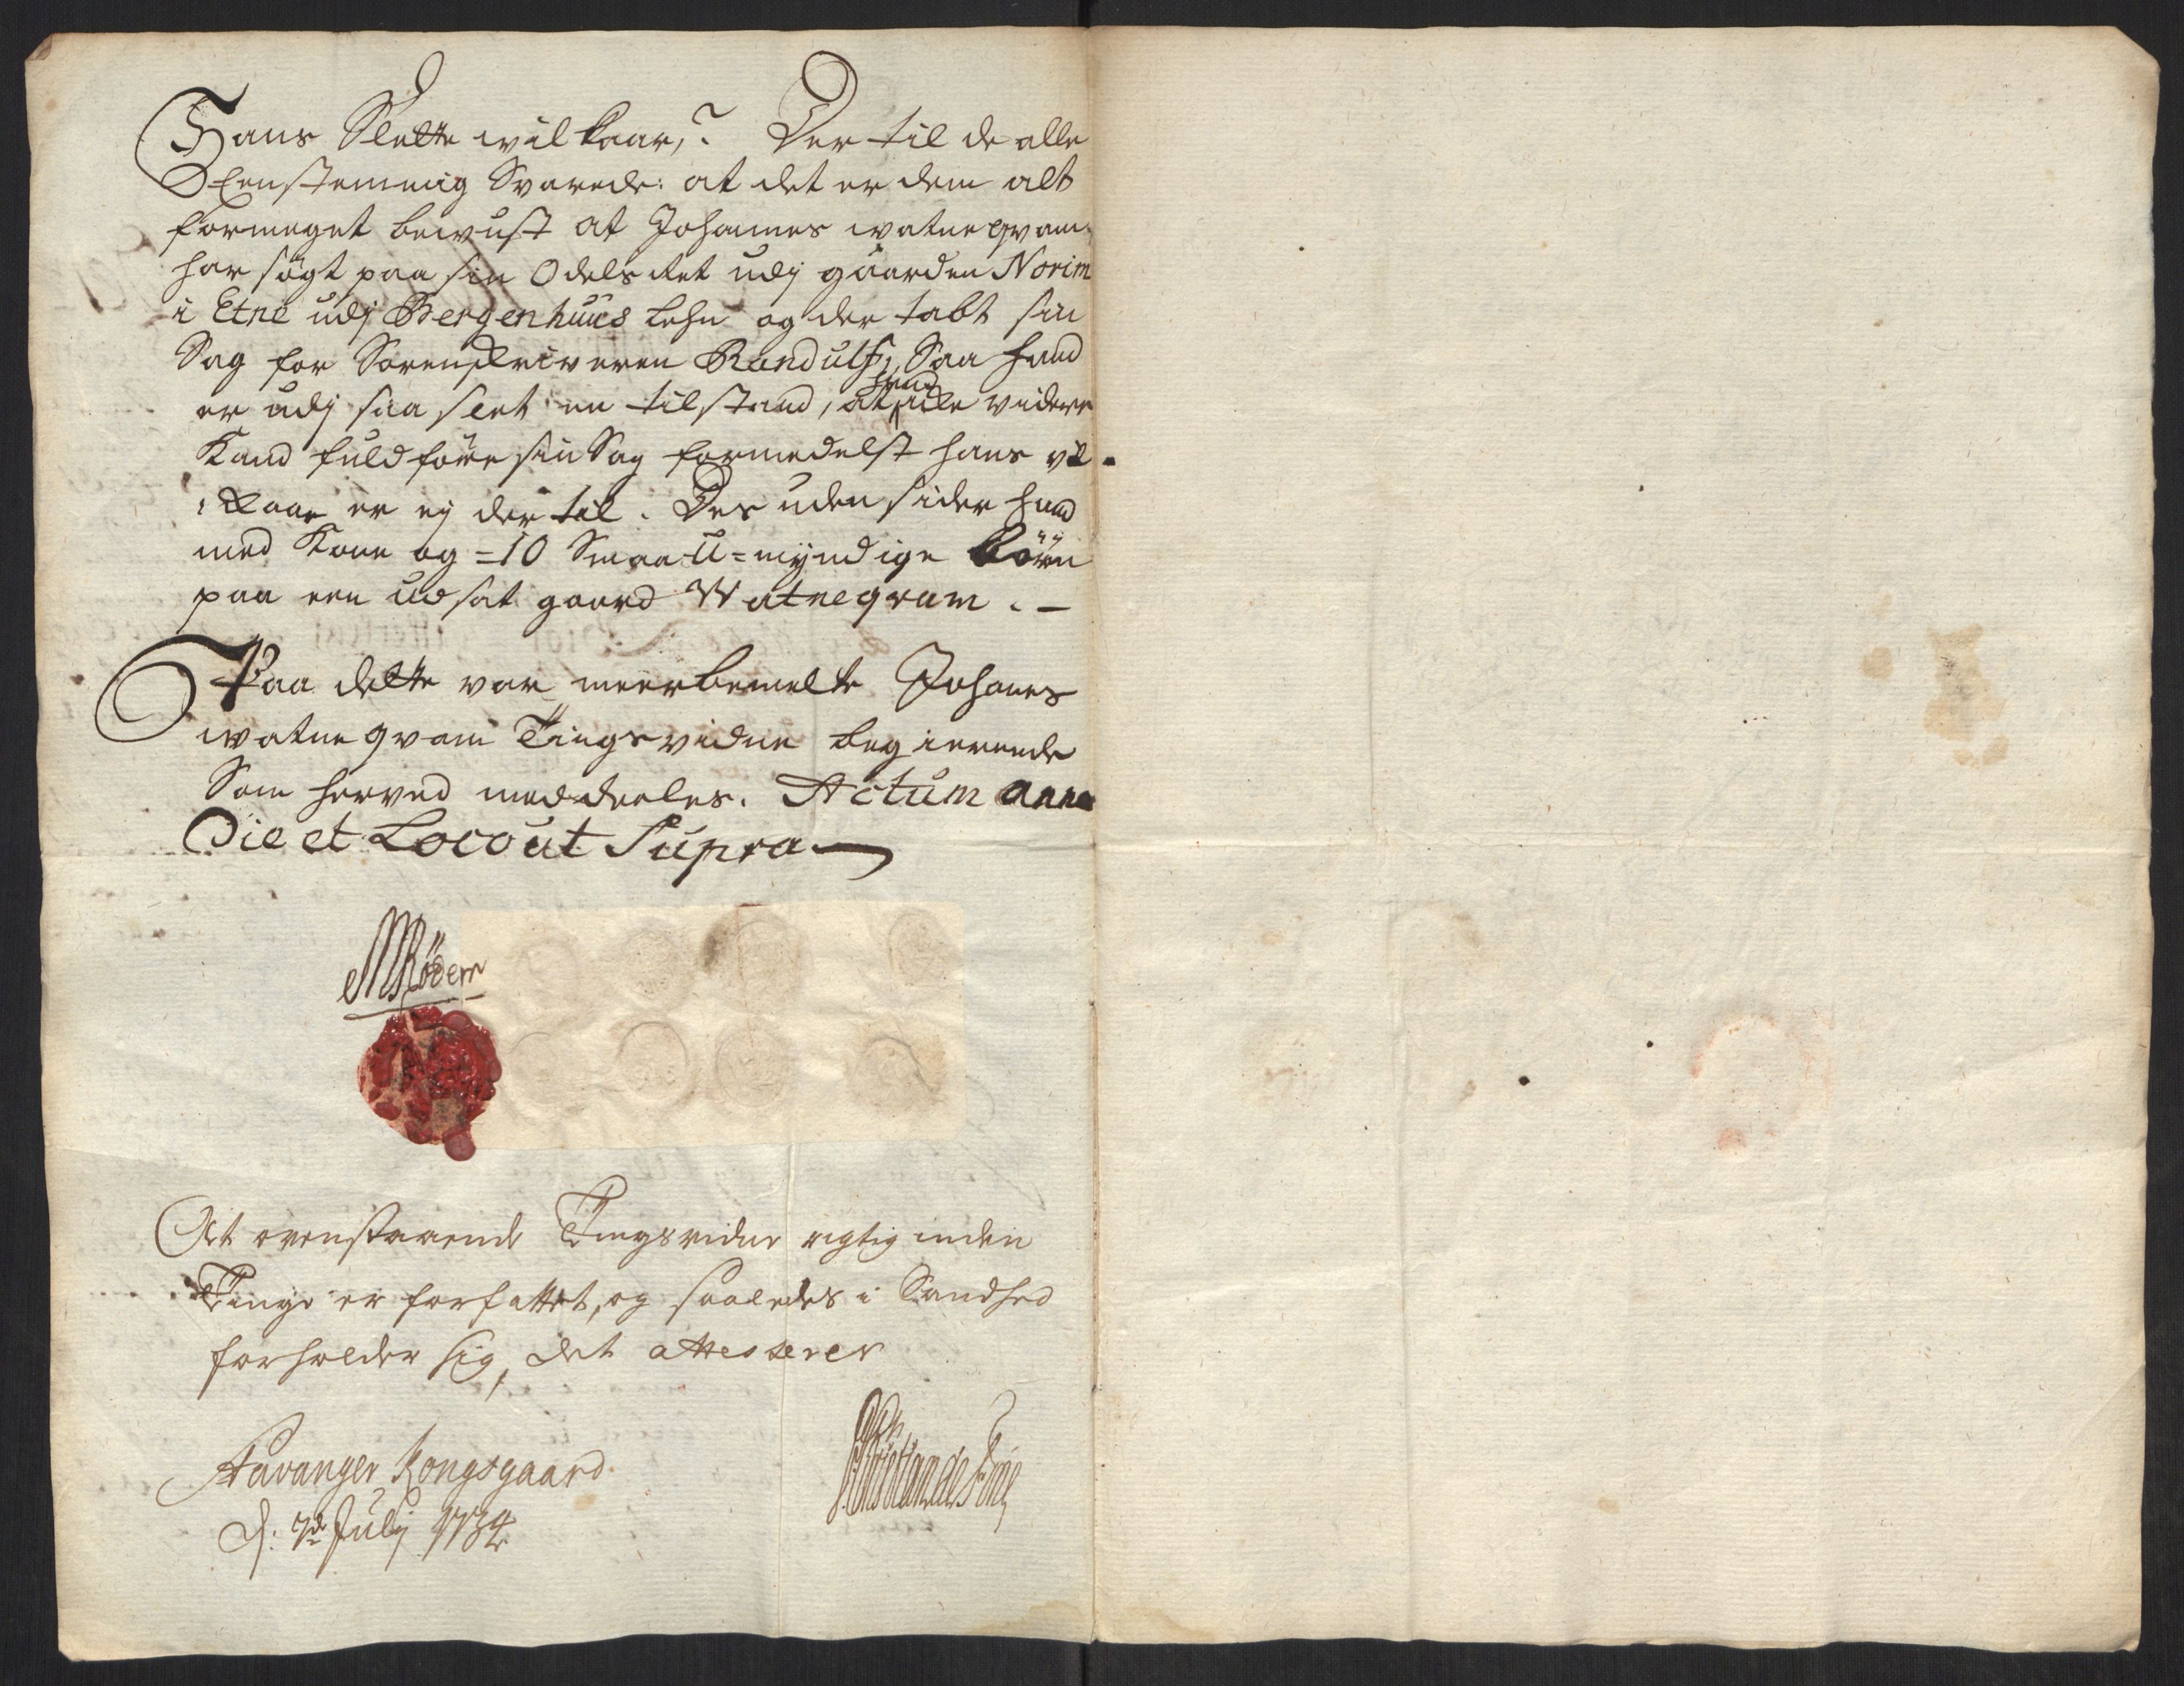 Hans Slette wilkaar,? Der til de alle
Eenstemmig Svarede: at det er dem alt
formeget bewust at Johannes watneqvam
har søgt paa sin Odels Ret udj gaarden Norim
i Etne udj Bergenhuus Lehn og der tabt sin
Sag for Sorenskriveren Randulf, Saa hand
er udj saa slet en tilstand, at hand icke videre
Kand fuldføre sin Sag formedelst hans vil-
kaar er ej der til. Des uden sider hand
med Kone og =10 Smaa U=myndige Børn
paa een udsat gaard Watneqvam.-
Paa dette var meerbemelte Johanes
watneqvam Tingsvidne begierende
Som herved meddeeles. Actum anno
Die et Loco ut Supra
At ovenstaaende Tingsvidne rigtig inden
Tinge er forfattet, og saaledes i Sandhed
forholder sig, det attesterer
Stavanger Kongsgaard
d: 7de Julij 1734